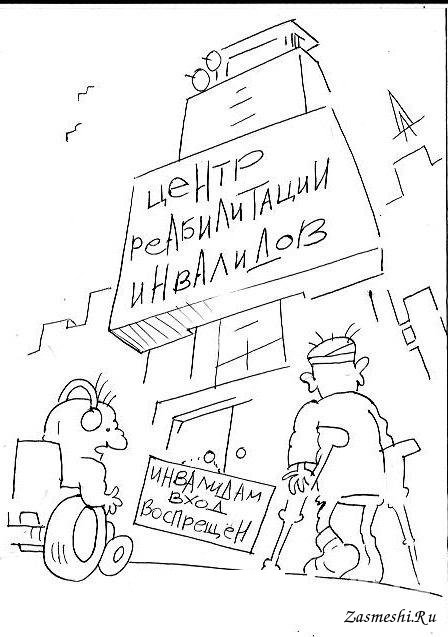 ЦЕНТР
РЕАБИЛИТАЦИИ
ИНВАЛИДОВ
ИНВАЛИДАМ
ВХОД
ВОСПРЕЩЁН
Zasmeshi.Ru